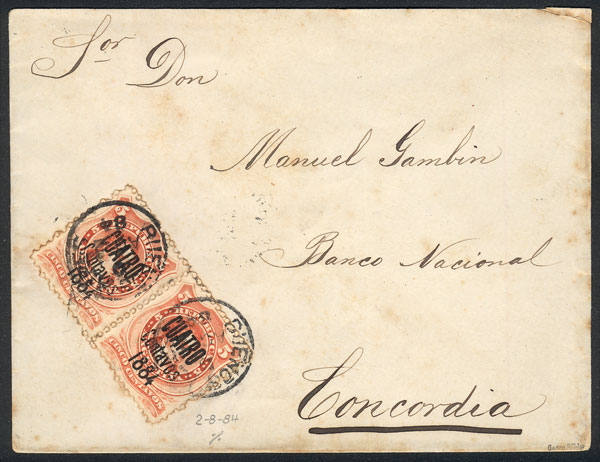 Sor Don
Manuel Gambin
Banco Nacional
Concordia
CUATRO
Centavos
1884
BUENOS
CUATRO
Centavos
1884
CINCO CENTAVOS
2-8-84